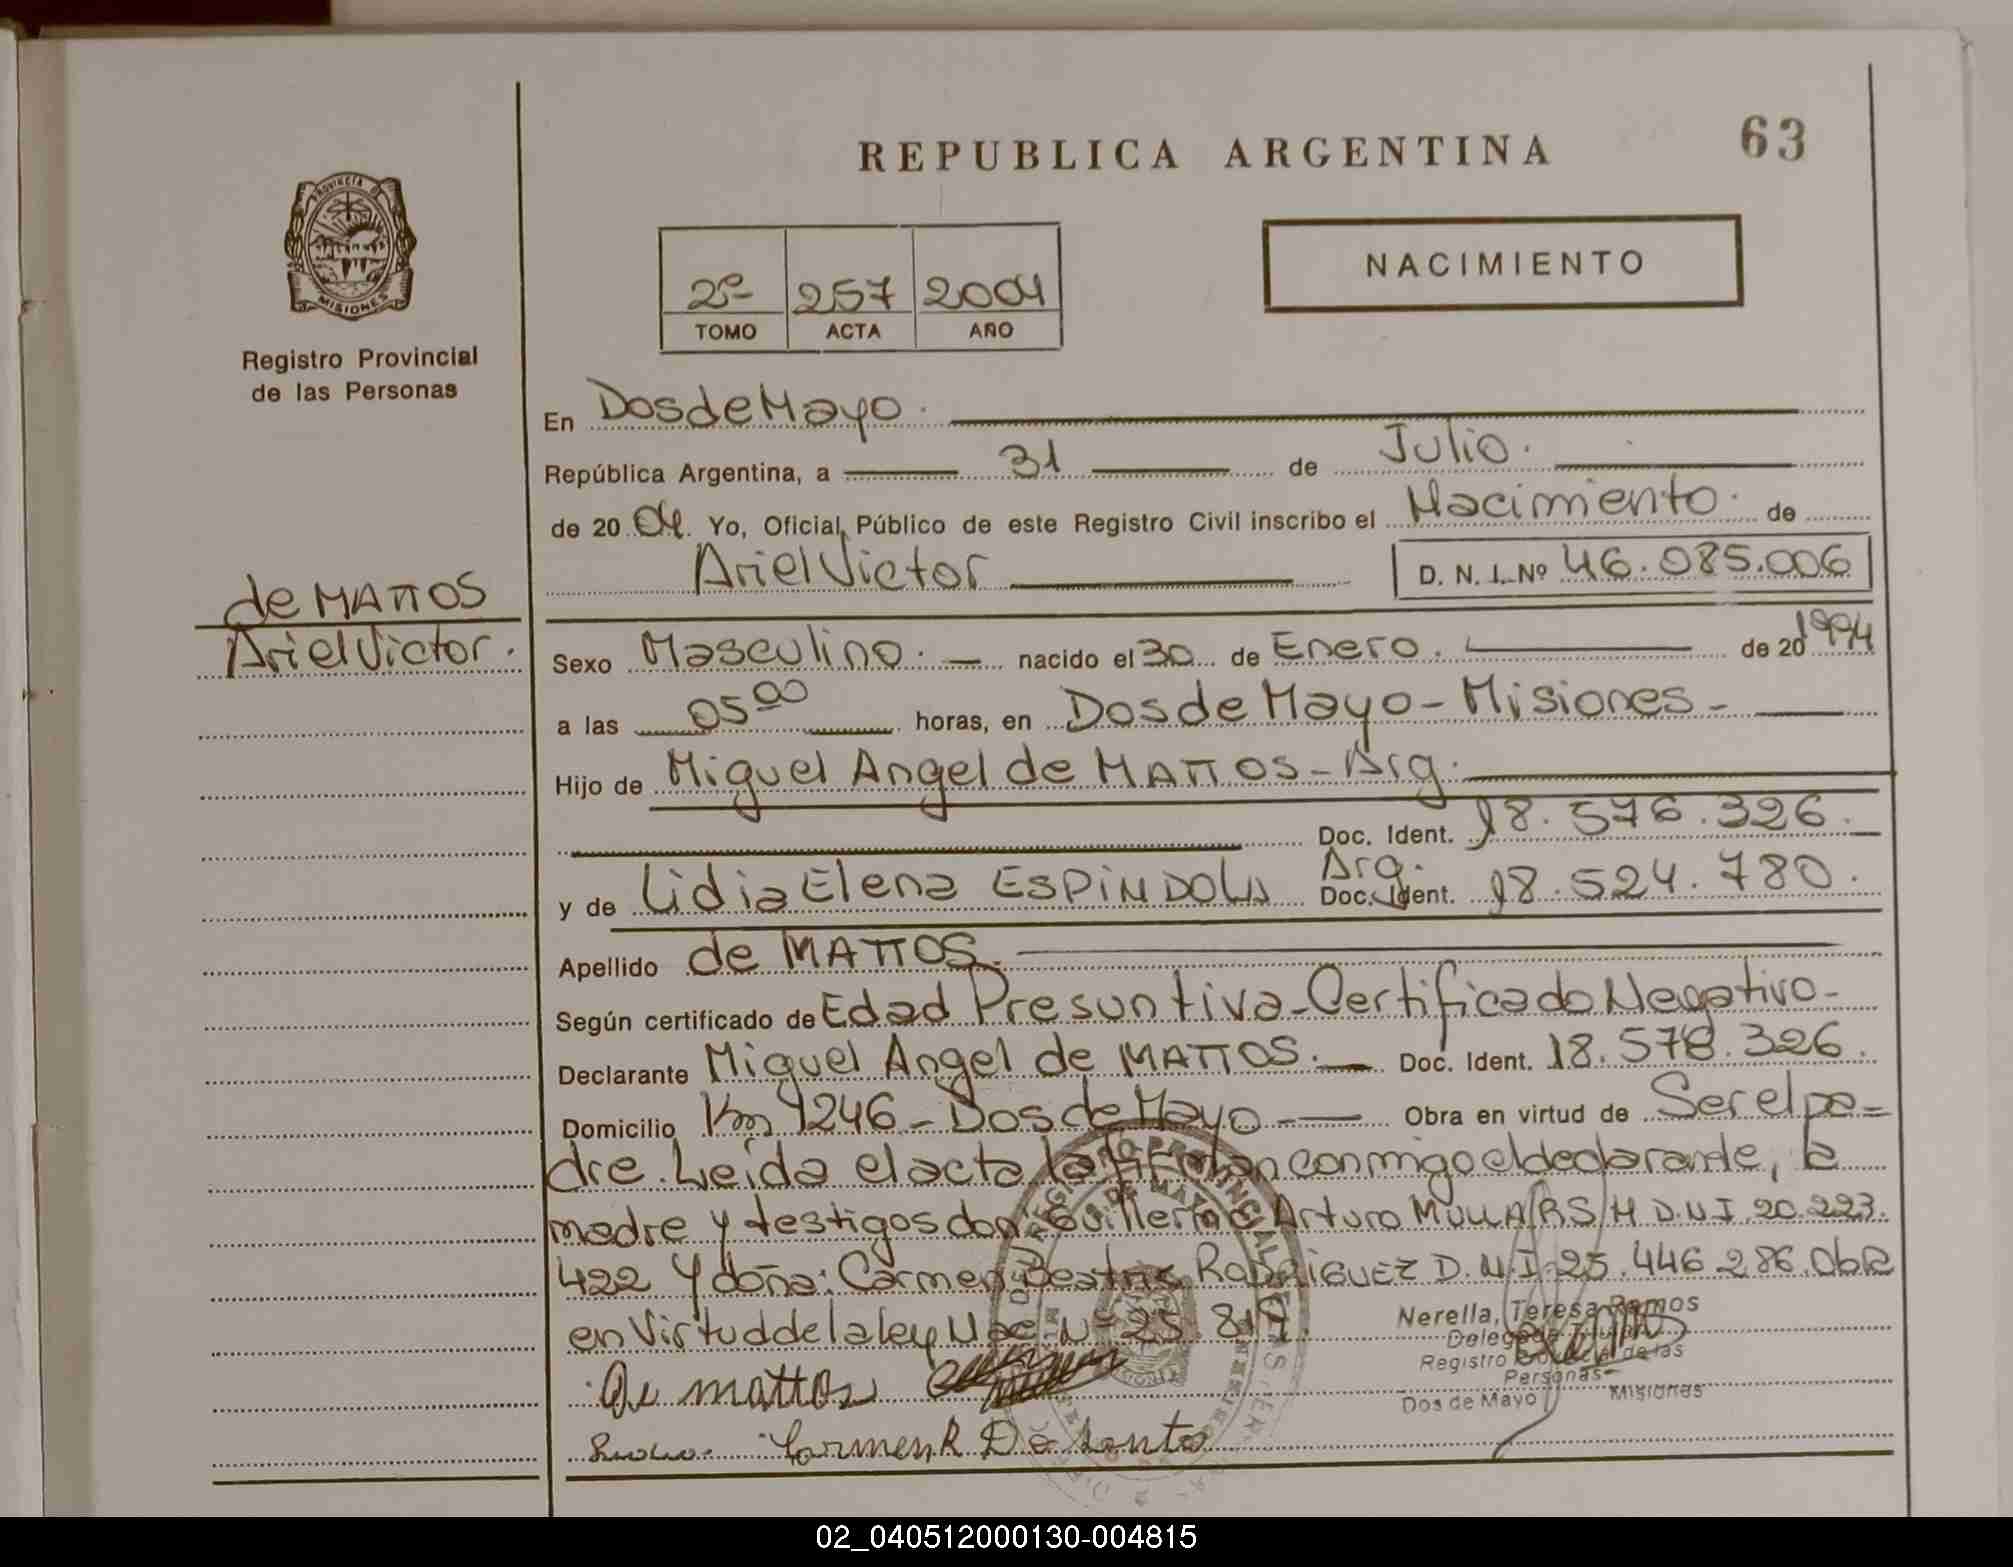 REPUBLICA ARGENTINA
63
PROVINCIA DE
MISIONES
Registro Provincial
de las Personas
NACIMIENTO
2º 257 2004
TOMO ACTA AÑO
En Dos de Mayo.
República Argentina, a 31 de Julio.
de 2004. Yo, Oficial Público de este Registro Civil inscribo el Nacimiento. de
Ariel Victor D. N. I. Nº 46.085.006
de MATTOS
Ariel Victor.
Sexo Masculino. nacido el 30 de Enero. de 20 1994
a las 05 00 horas, en Dos de Mayo - Misiones -
Hijo de Miguel Angel de MATTOS - Arg.
Doc. Ident. 18.576.326.
y de Lidia Elena ESPINDOLA Arg. Doc. Ident. 18.524.780.
Apellido de MATTOS.
Según certificado de Edad Presuntiva - Certificado Negativo -
Declarante Miguel Angel de MATTOS. Doc. Ident. 18.578.326.
Domicilio Km 1246 - Dos de Mayo - Obra en virtud de Ser el pa=
dre. Leída el acta la firman conmigo el declarante, la
madre y testigos don: Guillermo Arturo D.N.I. 20.223.
422 y doña: Carmen Beatriz RODRIGUEZ D.N.I. 25.446.286. Obra
en Virtud de la ley Nac. Nº 25.819.
Nerella, Teresa Ramos
Delegada Titular
Registro Provincial de las
Personas
Dos de Mayo Misiones
De mattos
02_040512000130-004815